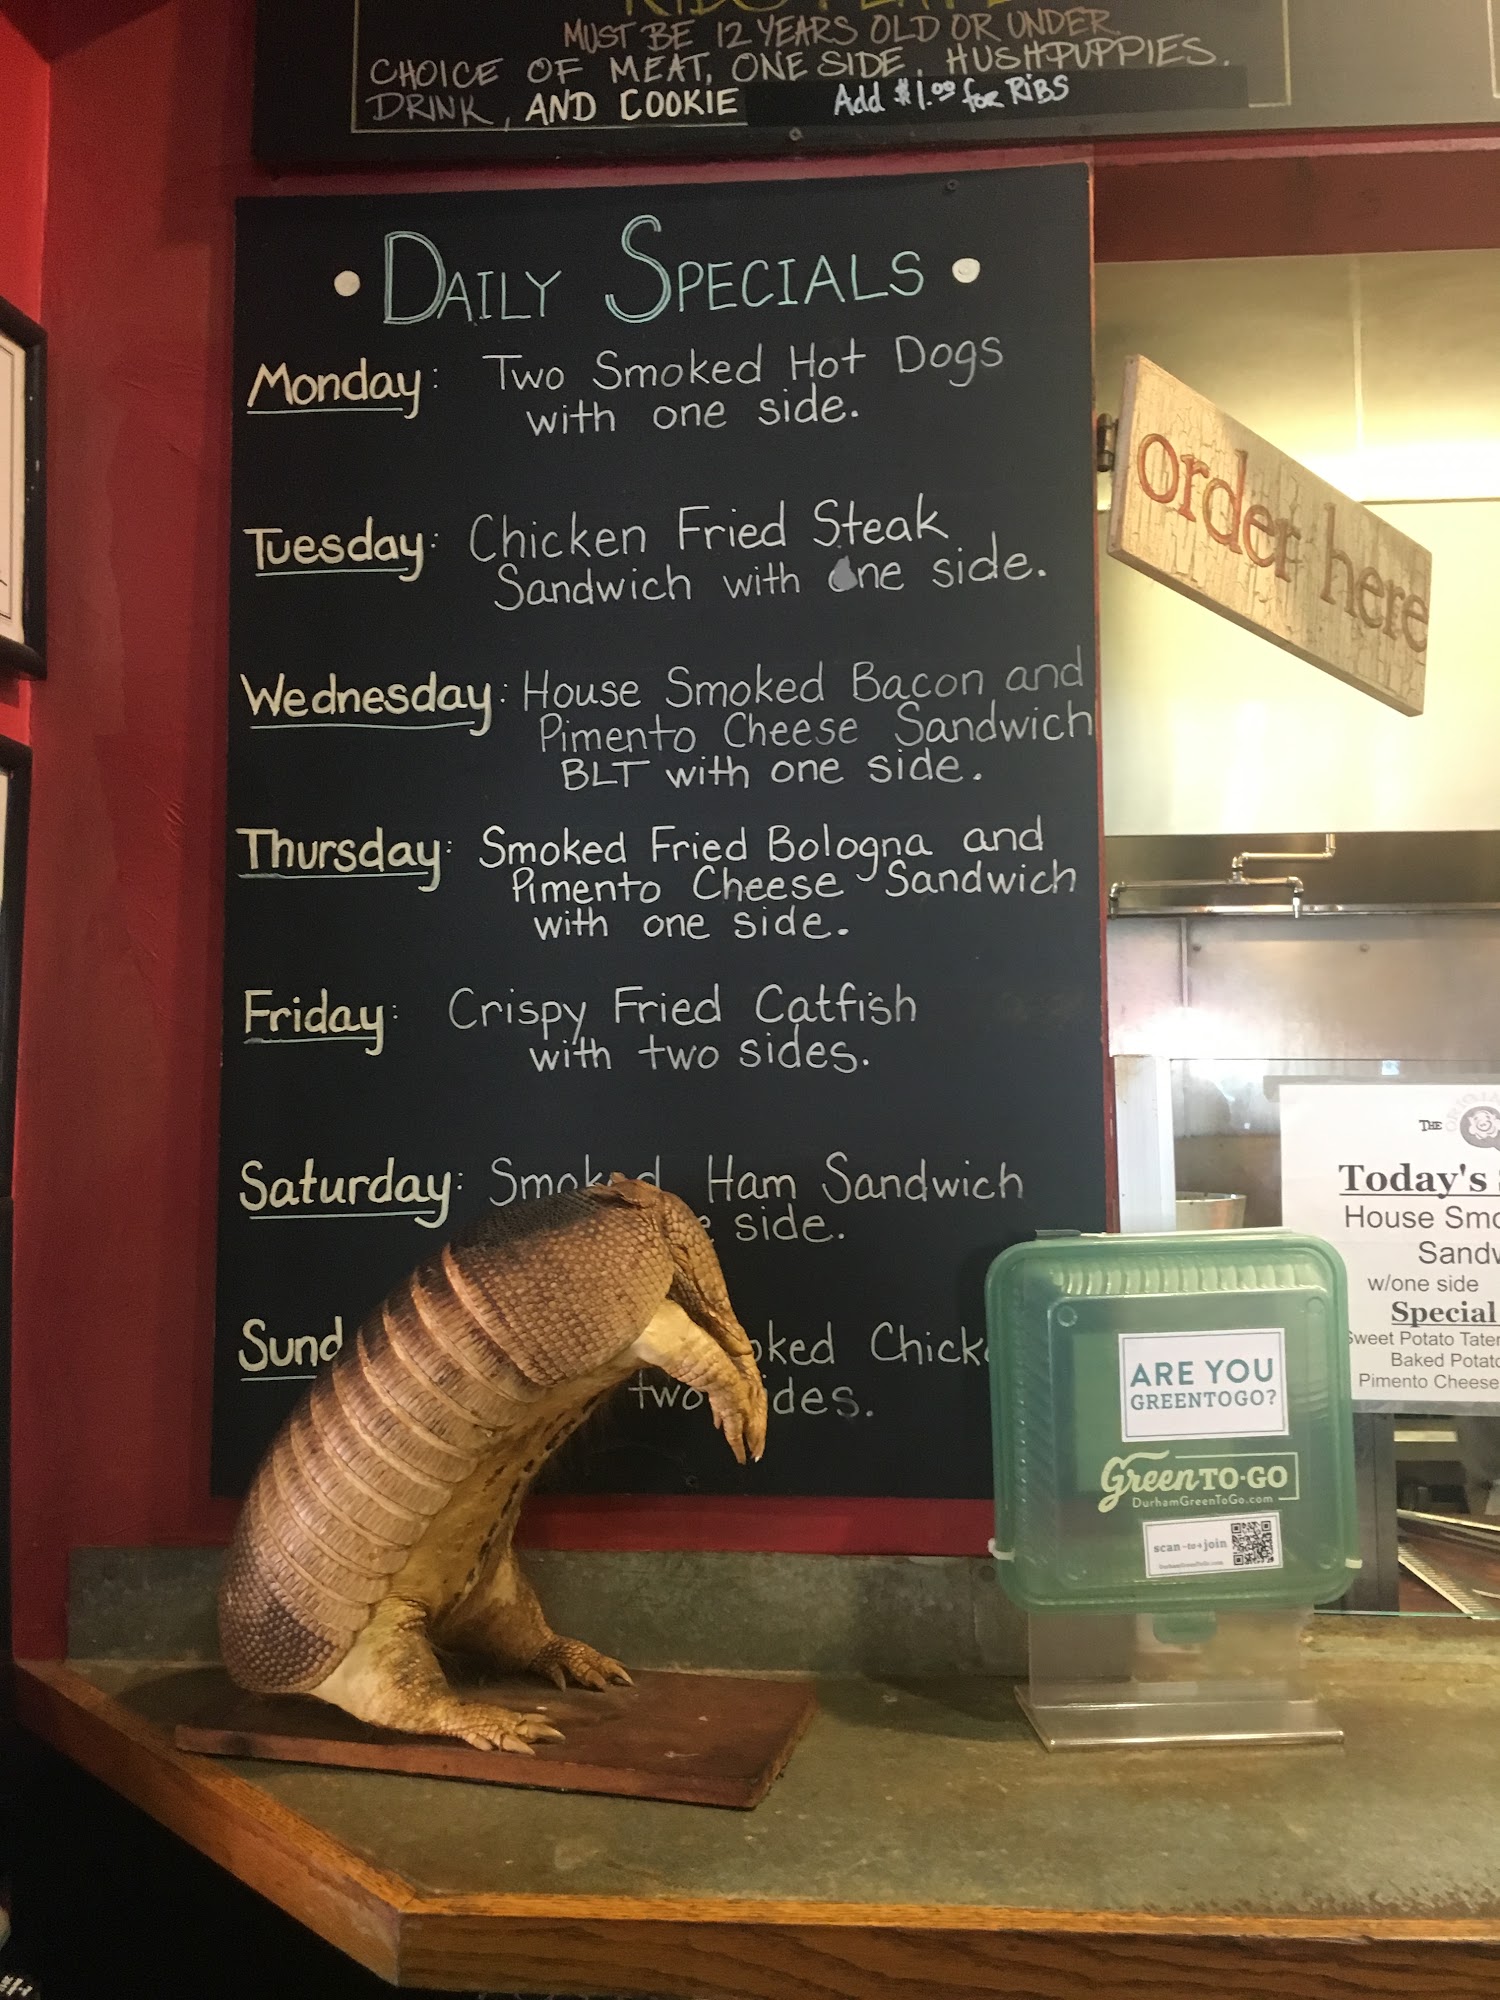 MUST BE 12 YEARS OLD OR UNDER
CHOICE OF MEAT, ONE SIDE, HUSHPUPPIES.
DRINK, AND COOKIE Add $1.00 for RIBS
DAILY SPECIALS
Monday: Two Smoked Hot Dogs
with one side.
Tuesday: Chicken Fried Steak
Sandwich with one side.
Wednesday: House Smoked Bacon and
Pimento Cheese Sandwich
BLT with one side.
Thursday: Smoked Fried Bologna and
Pimento Cheese Sandwich
with one side.
Friday: Crispy Fried Catfish
with two sides.
Saturday: Smoked Ham Sandwich
side.
two
order here
THE
Today's
House
w/one side
Special
Sweet Potato
Baked
Pimento Cheese
ARE YOU
GREENTOGO?
Green TO-GO
DurhamGreenToGo.com
scan-to-join